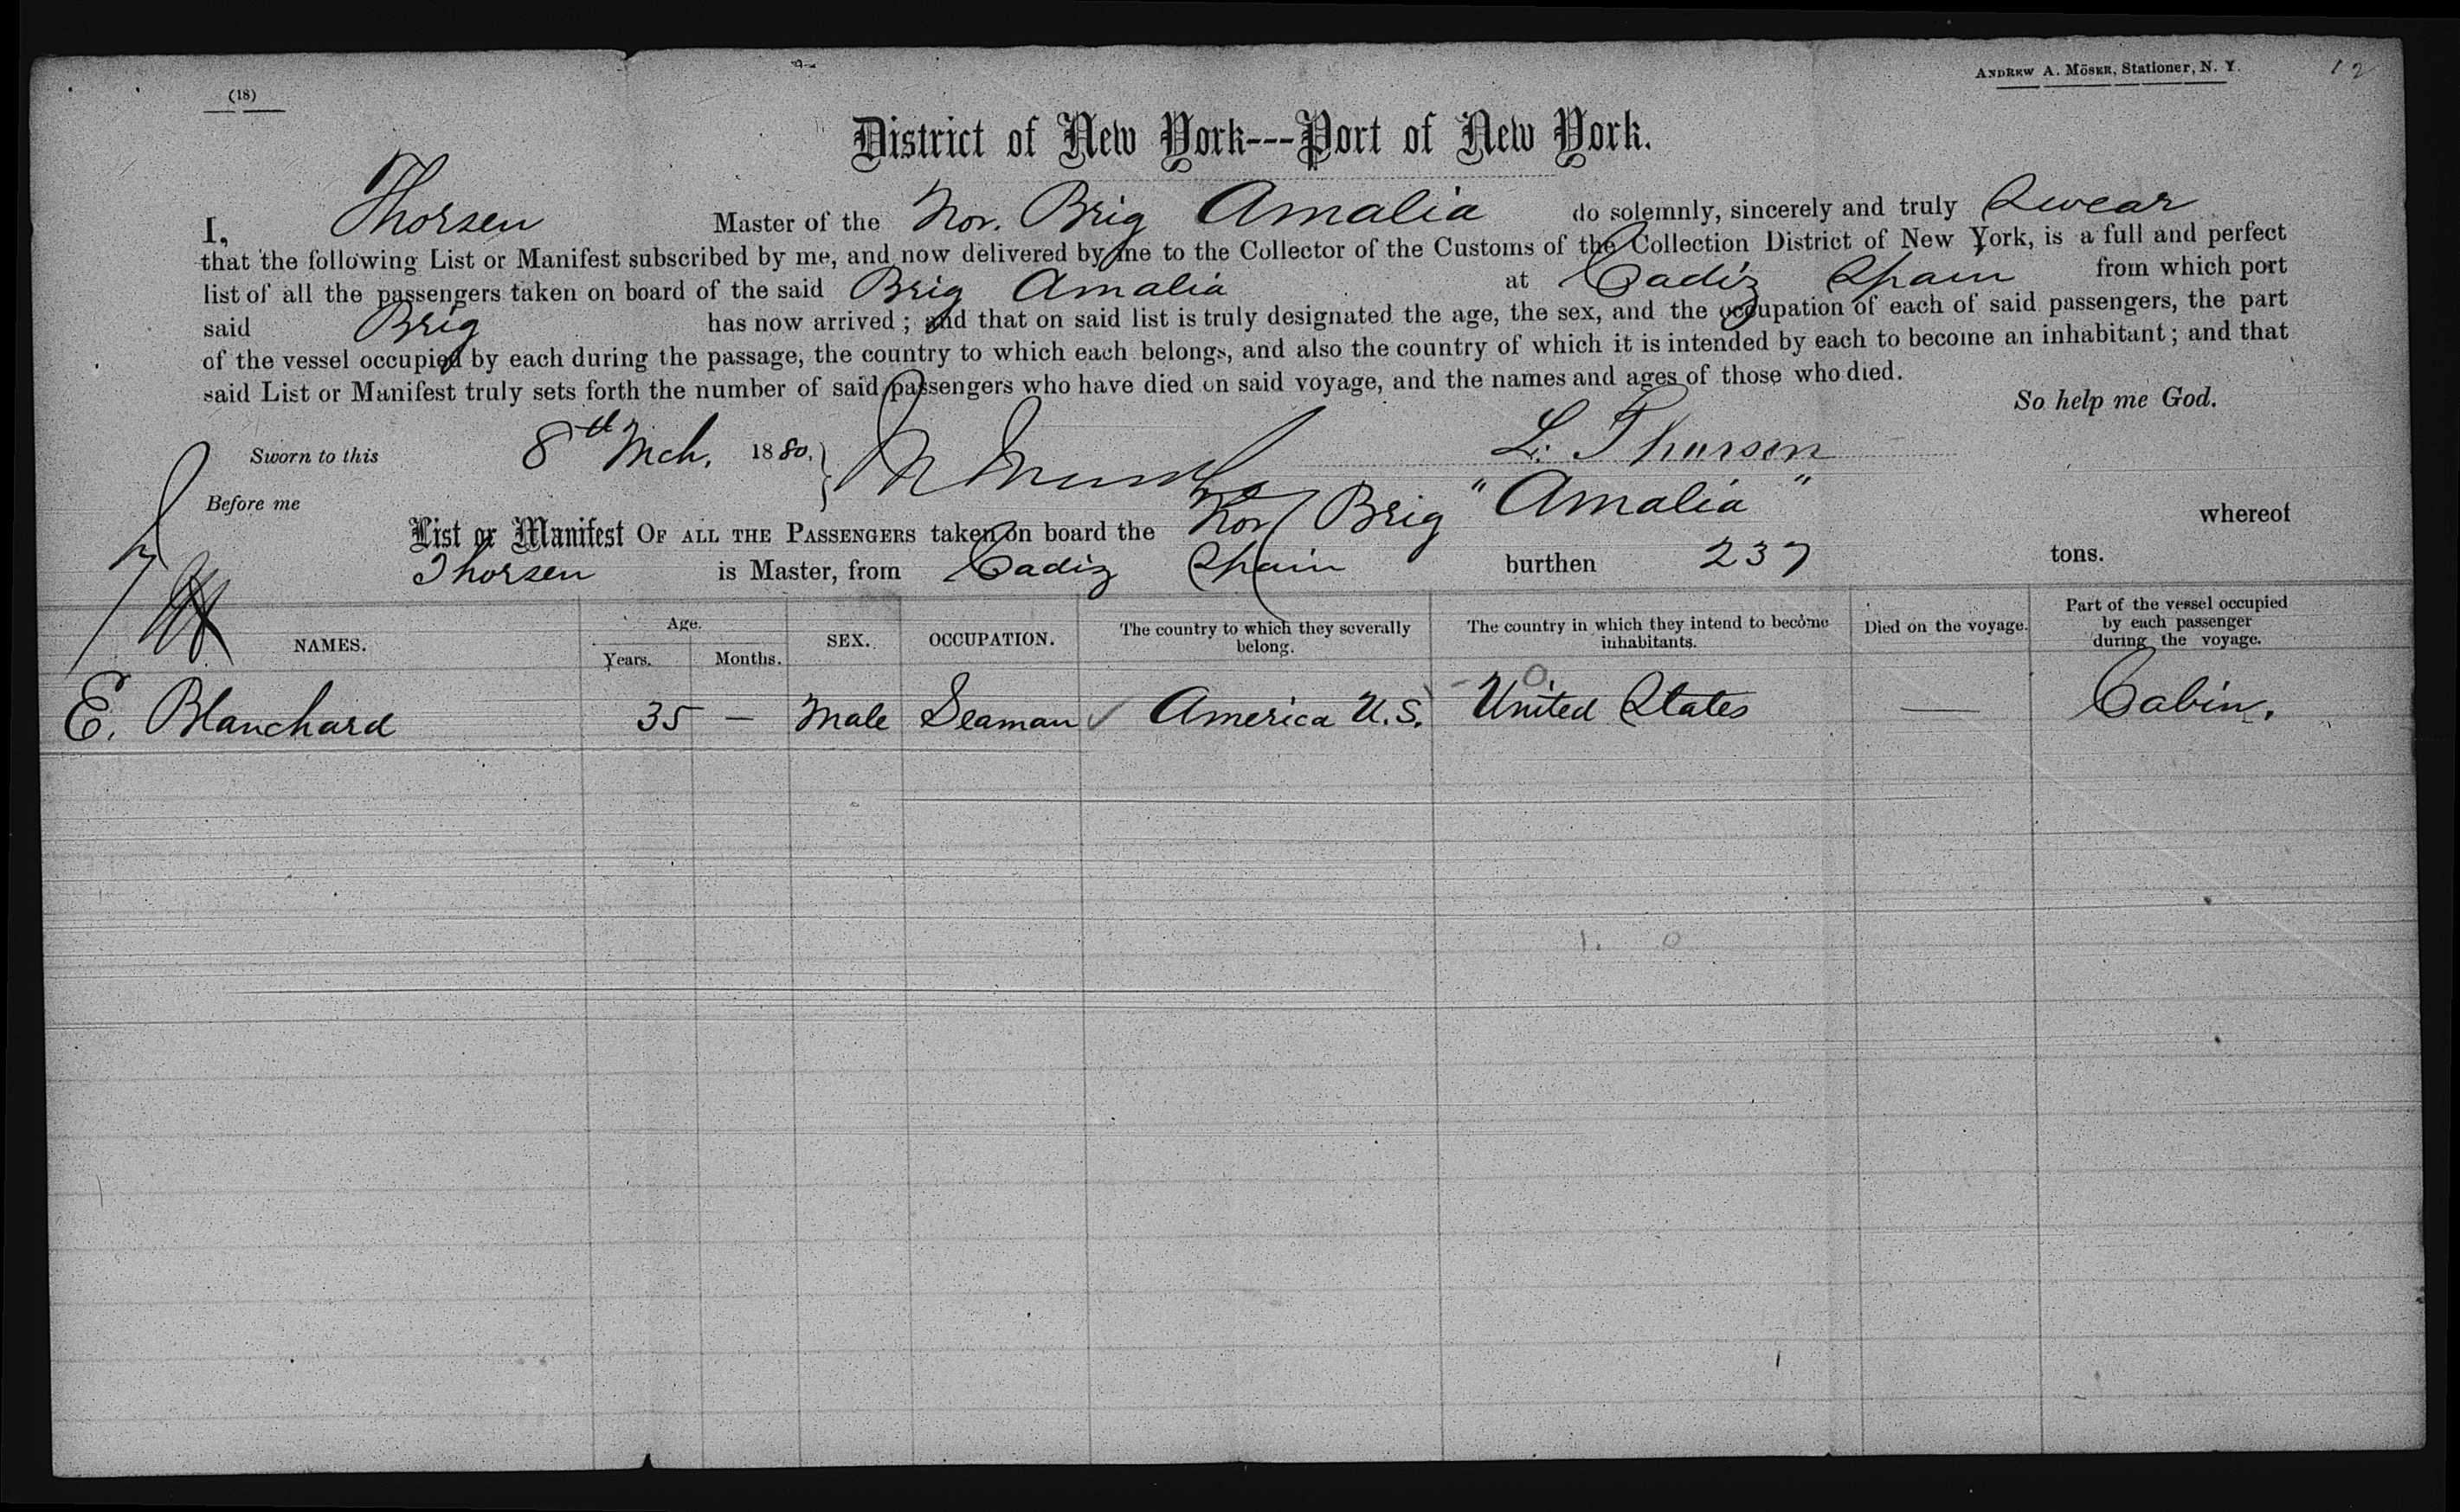 (18)
ANDREW A. MÖSER, Stationer, N. Y.
12
District of New York---Port of New York.
I, Thorsen Master of the Nor. Brig Amalia do solemnly, sincerely and truly Swear
that the following List or Manifest subscribed by me, and now delivered by me to the Collector of the Customs of the Collection District of New York, is a full and perfect
list of all the passengers taken on board of the said Brig Amalia at Cadiz Spain from which port
said Brig has now arrived ; and that on said list is truly designated the age, the sex, and the occupation of each of said passengers, the part
of the vessel occupied by each during the passage, the country to which each belongs, and also the country of which it is intended by each to become an inhabitant ; and that
said List or Manifest truly sets forth the number of said passengers who have died on said voyage, and the names and ages of those who died.
So help me God.
Sworn to this 8th Mch. 1880. L. Thorsen
Before me
List or Manifest OF ALL THE PASSENGERS taken on board the Nor Brig "Amalia" whereof
Thorsen is Master, from Cadiz Spain burthen 237 tons.
NAMES. Age. Years. Months. SEX. OCCUPATION. The country to which they severally belong. The country in which they intend to become inhabitants. Died on the voyage. Part of the vessel occupied by each passenger during the voyage.
E. Blanchard 35 — Male Seaman ✓ America U.S. United States — Cabin.
1. 0